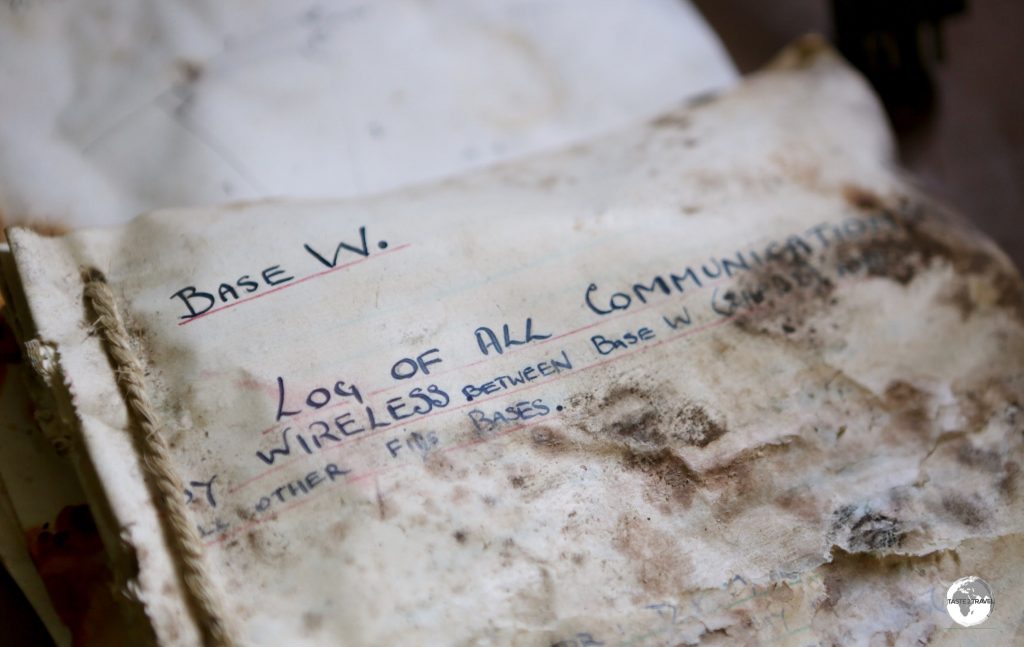 BASE W.
LOG OF ALL COMMUNICATION
BY WIRELESS BETWEEN BASE W
ALL OTHER FIDS BASES.
TASTE2TRAVEL